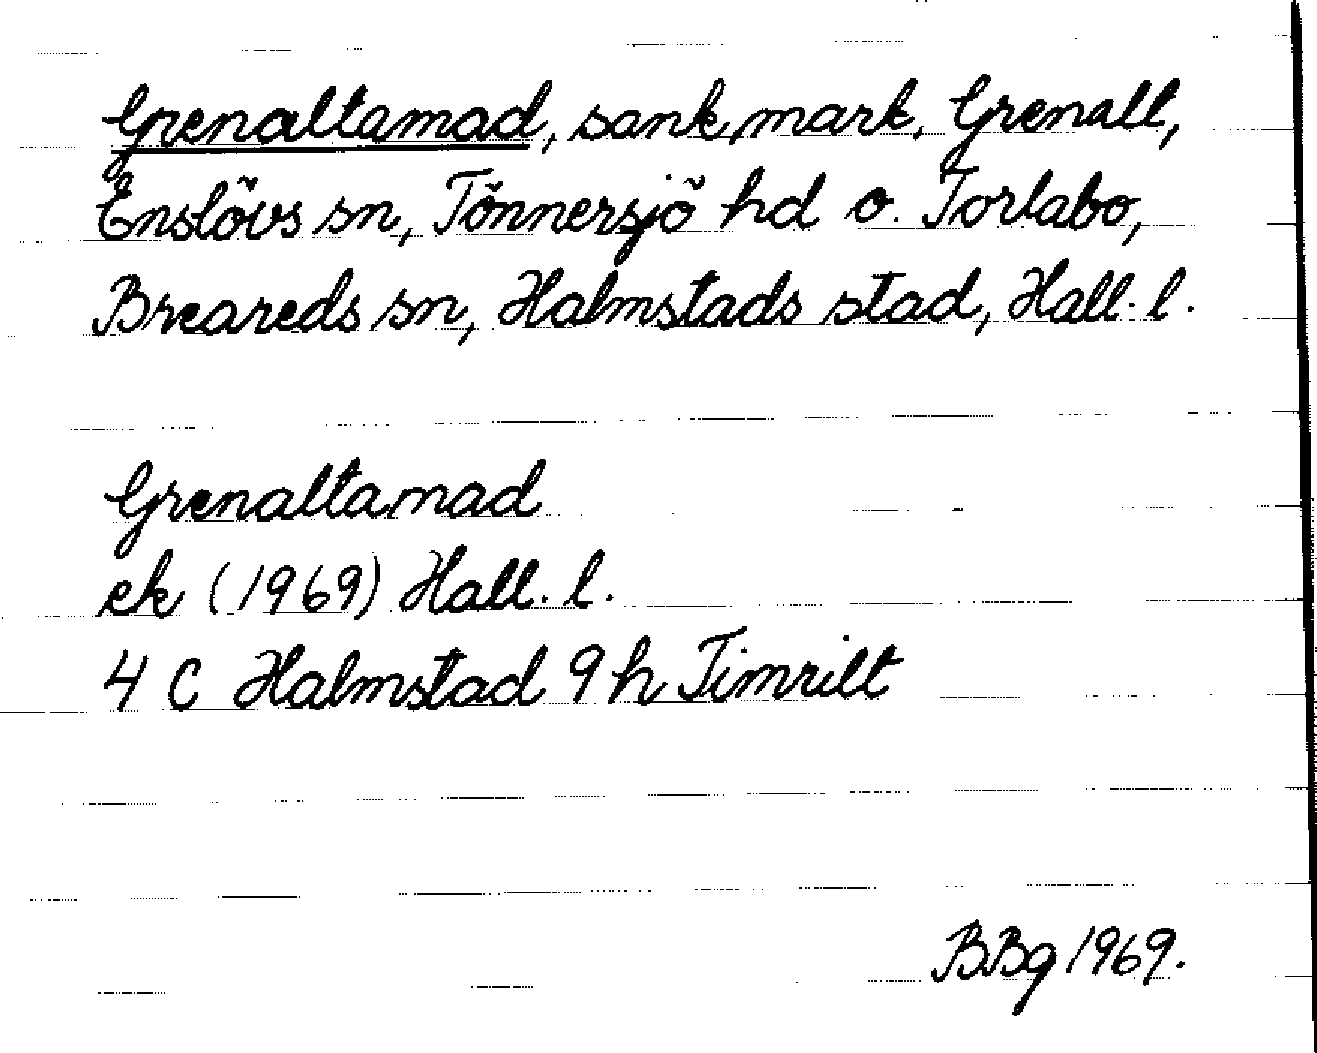 Grenaltamad, sank mark, Grenalt,
Enslövs sn, Tönnersjö hd o. Torlabo,
Breareds sn, Halmstads stad, Hall. l.
Grenaltamad
ek (1969) Hall. l.
4 C Halmstad 9 h Timrilt
BBg 1969.